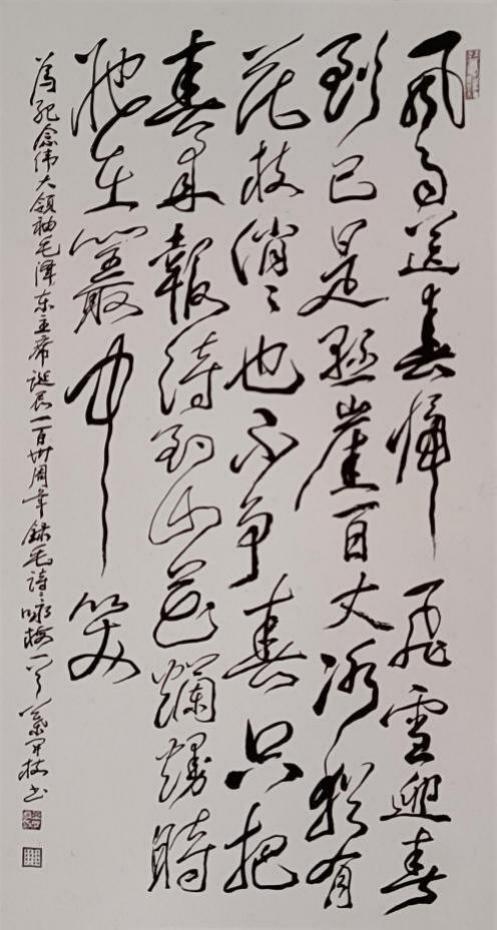 風雨送春歸飛雪迎春
到已是懸崖百丈冰猶有
花枝俏々也不争春只把
春來報待到山花爛熳時
她在叢中笑
為紀念伟大領袖毛澤东主席誕辰一百卅周年錄毛詩咏梅一首 葉书